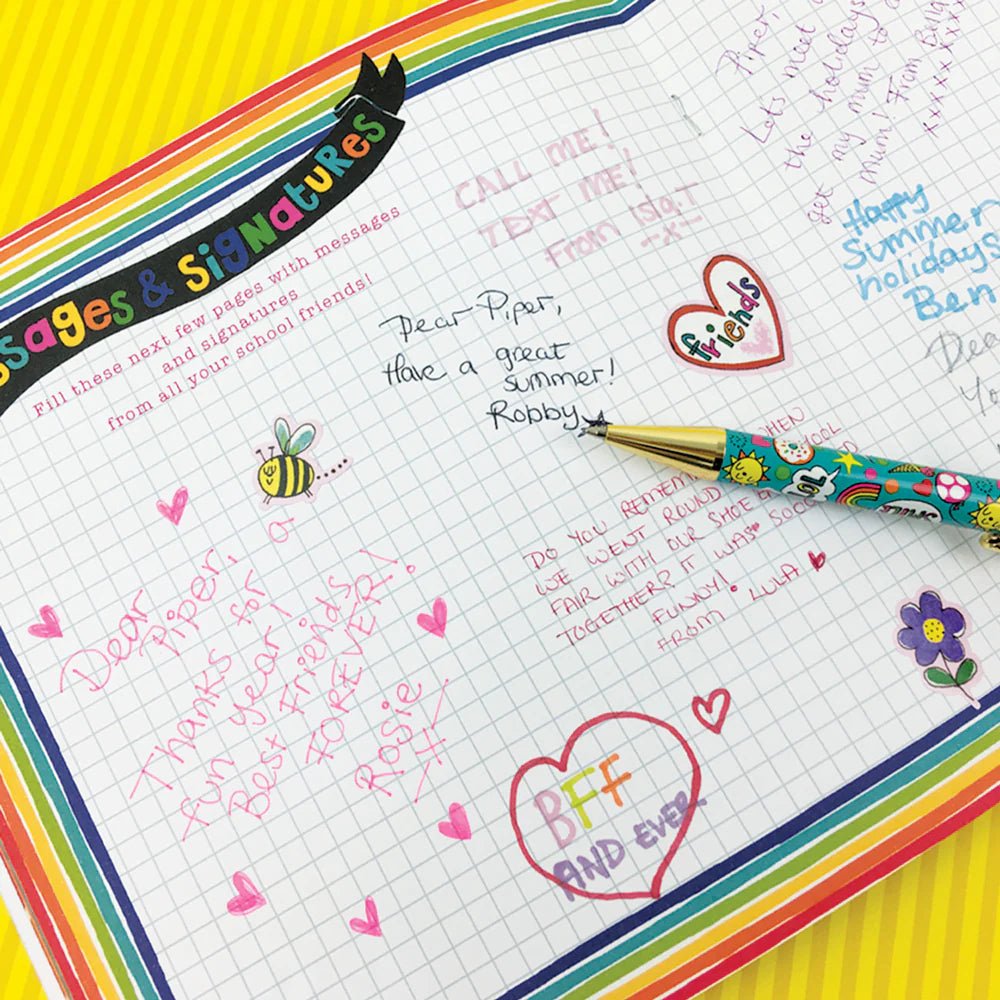 ssages & SigNatuRes
Fill these next few pages with messages
and signatures
from all your school friends!
CALL ME!
TEXT ME!
From Isla.T
-x-
Piper,
Lets meet
the holidays
get my mum to
mum! From Bella
xxxxxxxxx
Happy
Summer
holidays
Ben
Dear Piper,
Have a great
summer!
Robby
friends
LOL
SMILE
DO YOU REMEMB
WHEN
WE WENT ROUND
SCHOOL
FAIR WITH OUR SHOE
TOGETHER? IT WAS SOOO
FUNNY!
FROM LULA
Dear
Piper,
Thanks for
fun year!
Best Friends
FOREVER!
Rosie
BFF
AND EVER